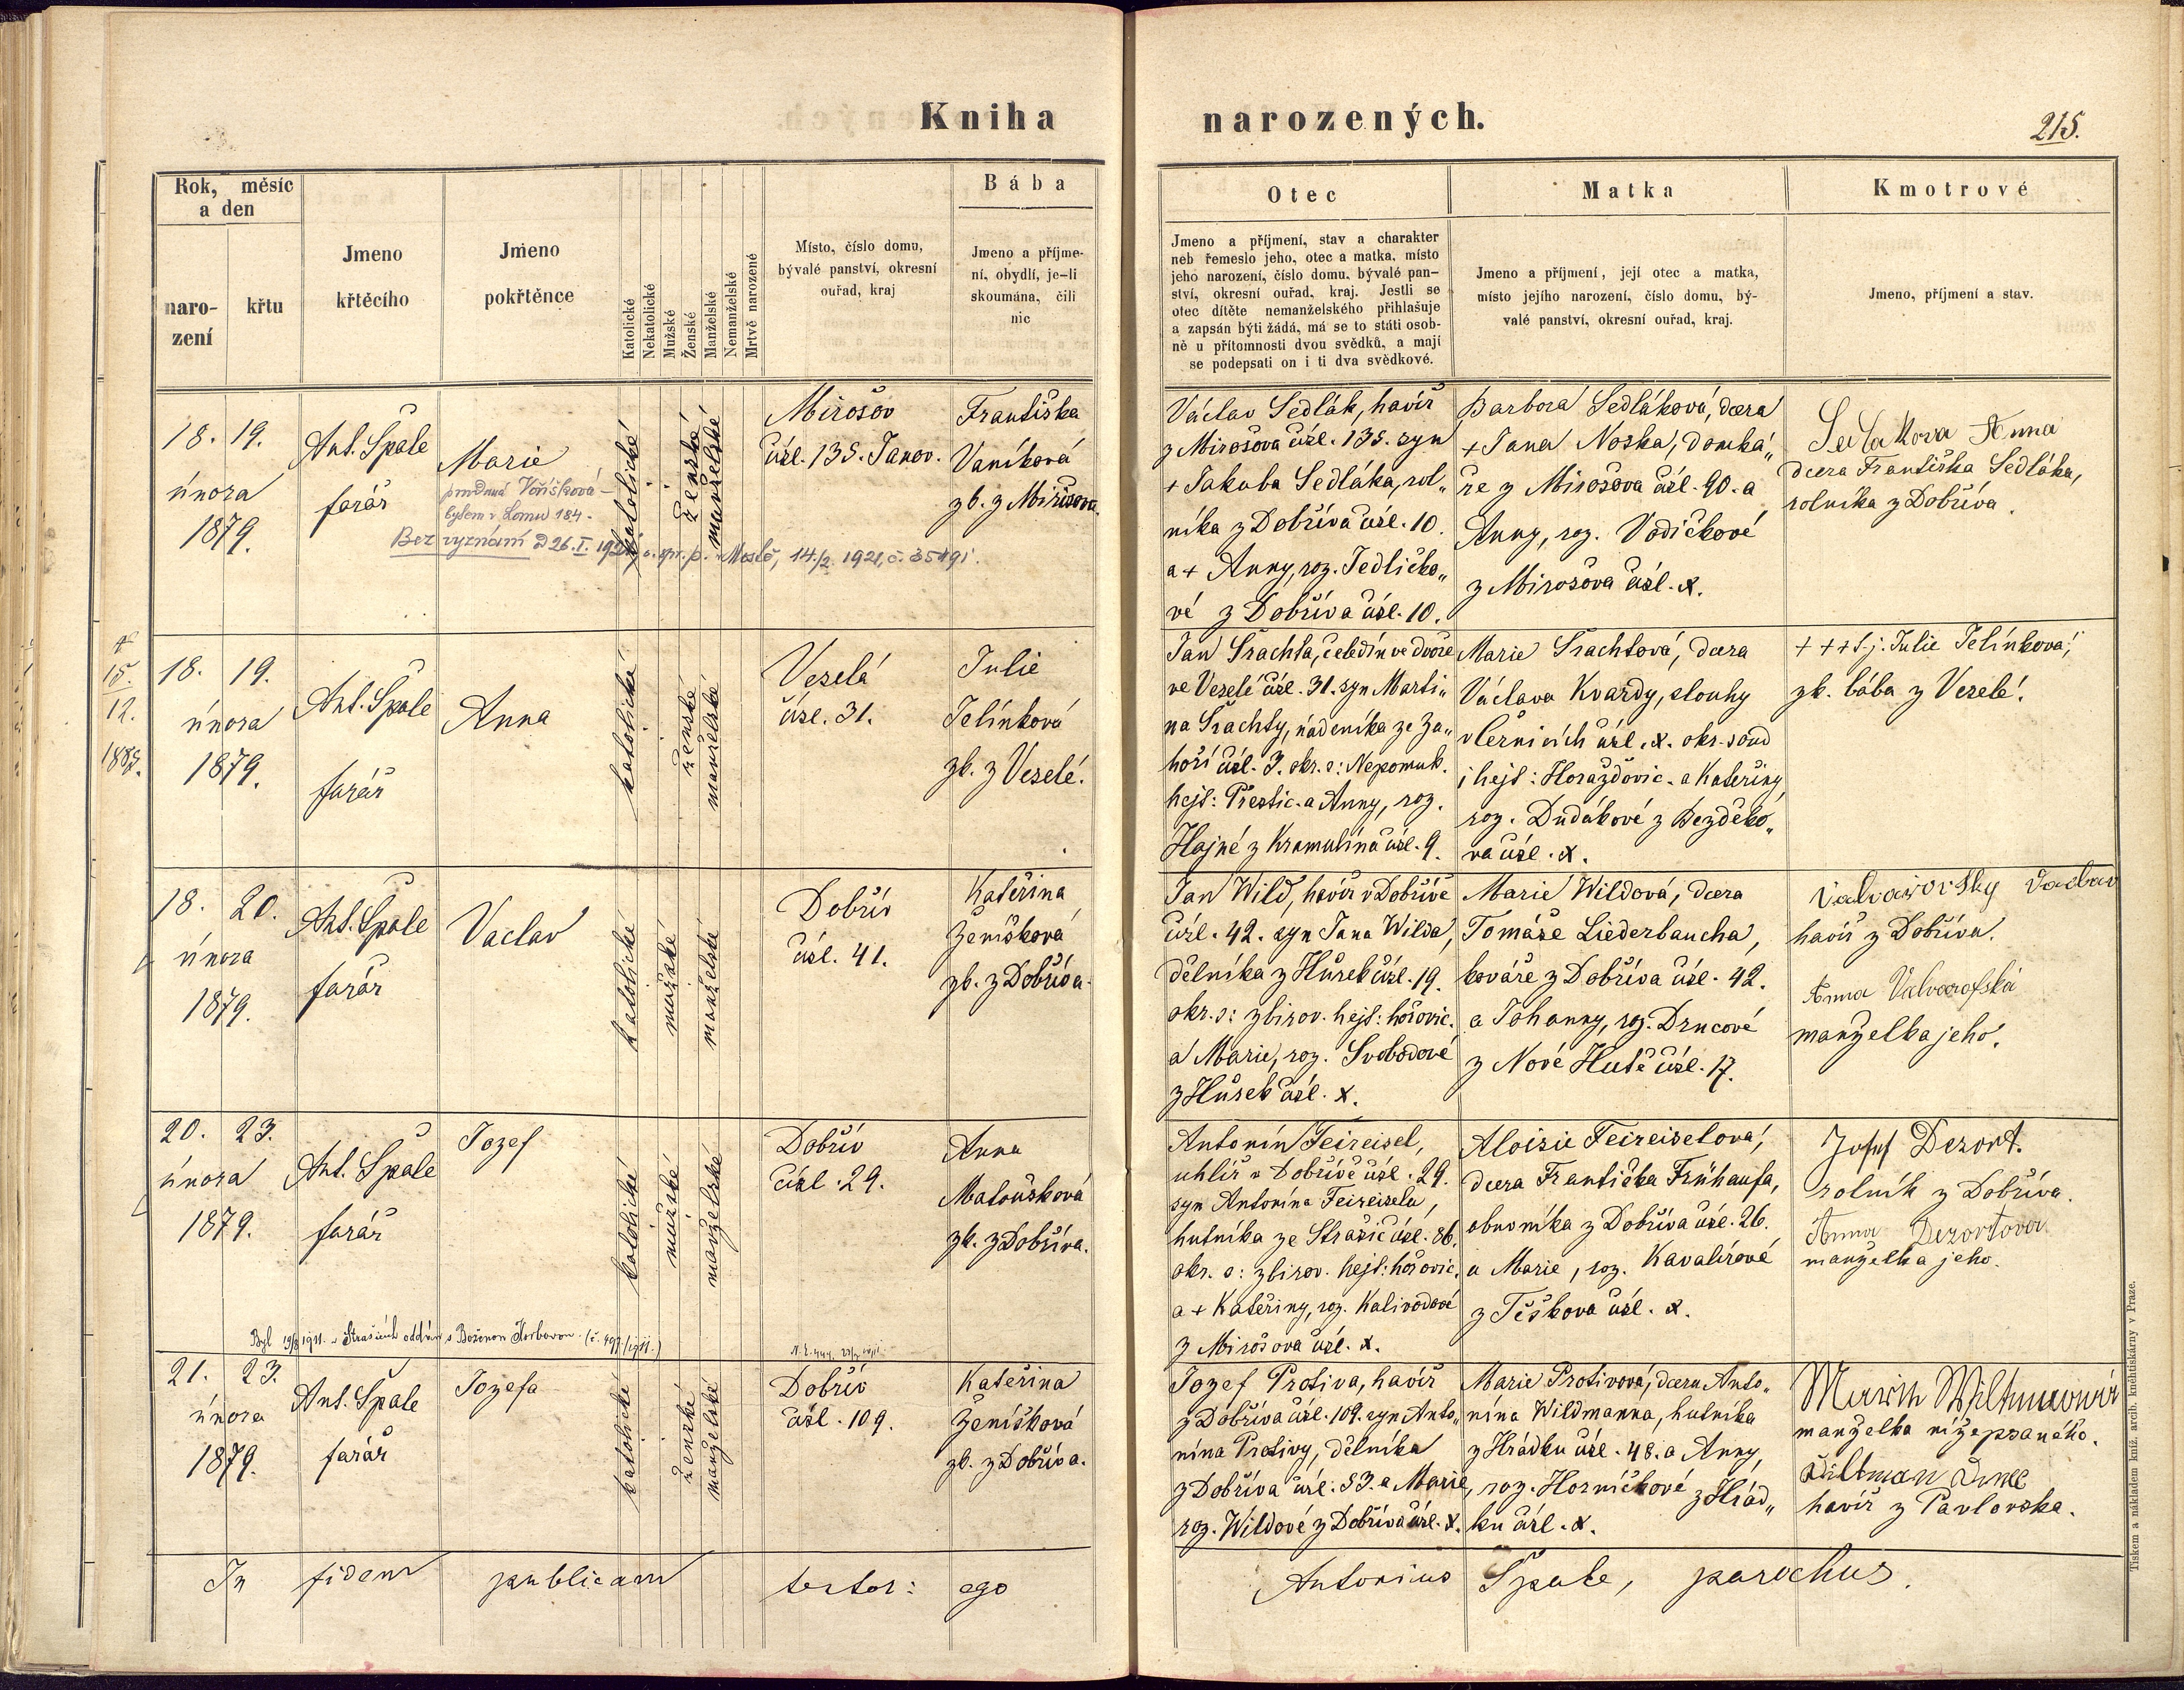 Kniha
narozených.
215.
Rok, měsíc
a den
naro-
zení
křtu
Jmeno
křtěcího
Jmeno
pokřtěnce
Katolické
Nekatolické
Mužské
Ženské
Manželské
Nemanželské
Mrtvě narozené
Místo, číslo domu,
bývalé panství, okresní
ouřad, kraj
Bába
Jmeno a příjme-
ní, obydlí, je-li
skoumána, čili
nic
Otec
Jmeno a příjmení, stav a charakter
neb řemeslo jeho, otec a matka, místo
jeho narození, číslo domu, bývalé pan-
ství, okresní ouřad, kraj. Jestli se
otec dítěte nemanželského přihlašuje
a zapsán býti žádá, má se to státi osob-
ně u přítomnosti dvou svědků, a mají
se podepsati on i ti dva svědkové.
Matka
Jmeno a příjmení, její otec a matka,
místo jejího narození, číslo domu, bý-
valé panství, okresní ouřad, kraj.
Kmotrové
Jmeno, příjmení a stav.
18. 19.
února
1879.
Ant. Špale
farář
Marie
provdaná Voříšková
bytem v Lomu 184.
Bez vyznání D 26. I. 1921, o. spr. p. Mostě, 14./2. 1921, č. 35491.
katolické
ženské
manželské
Mirošov
čísl. 135. Janov.
Františka
Vaníková
zk. z Mirošova.
Václav Sedlák, havíř
z Mirošova čísl. 135. syn
+ Jakuba Sedláka, rol„
níka z Dobříva čísl. 10.
a + Anny, roz. Jedličko„
vé z Dobříva čísl. 10.
Barbora Sedláková, dcera
+ Jana Noska, domká„
ře z Mirošova čísl. 90. a
Anny, roz. Vodičkové
z Mirošova čísl. x.
Sedlakova Anna
dcera Františka Sedláka,
rolníka z Dobříva.
15.
12.
1883.
18. 19.
února
1879.
Ant. Špale
farář
Anna
katolické
ženské
manželské
Veselá
čísl. 31.
Julie
Jelínková
zk. z Veselé.
Jan Šrachta, čeledín ve dvoře
ve Veselé čísl. 31. syn Marti„
na Šrachty, nádeníka ze Zá„
hoří čísl. 3. okr. s: Nepomuk.
hejt: Přestic. a Anny, roz.
Hajné z Kramolína čísl. 9.
Marie Šrachtová, dcera
Václava Kvardy, slouhy
v Černicích čísl. x. okr. soud
i hejt: Horažďovic. a Kateřiny,
roz. Dudákové z Bezděko„
va čísl. x.
+++ t. j. Julie Jelínková,
zk. bába z Veselé.
18. 20.
února
1879.
Ant. Špale
farář
Vaclav
katolické
mužské
manželské
Dobřív
čísl. 41.
Kateřina
Ženíšková
zk. z Dobříva.
Jan Wild, havíř v Dobřívě
čísl. 42. syn Jana Wilda,
dělníka z Hůrek čísl. 19.
okr. s: zbirov. hejt: hořovic.
a Marie, roz. Svobodové
z Hůrek čísl. x.
Marie Wildová, dcera
Tomáše Liederbaucha,
kováře z Dobříva čísl. 42.
a Johanny, roz. Drncové
z Nové Hutě čísl. 17.
Valvařovský Vaclav
havíř z Dobříva.
Anna Valvarofská
manželka jeho.
20. 23.
února
1879.
Ant. Špale
farář
Jozef
katolické
mužské
manželské
Dobřív
čísl. 29.
Anna
Matoušková
zk. z Dobříva.
Antonín Feireisel,
uhlíř v Dobřívě čísl. 29.
syn Antonína Feireisela,
hutníka ze Strašic čísl. 86.
okr. s: zbirov. hejt: hořovic.
a + Kateřiny, roz. Kalivodové
z Mirošova čísl. x.
Aloisie Feireiselová,
dcera Františka Frühaufa,
obuvníka z Dobříva čísl. 26.
a Marie, roz. Kavalírové
z Těškova čísl. x.
Josef Dezort.
rolník z Dobříva.
Anna Dezortova
manželka jeho.
Byl 19/8 1911. v Strašicích oddán s Boženou Horbovou. (č. 497/1911.)
21. 23.
února
1879.
Ant. Špale
farář
Jozefa
katolické
ženské
manželské
Dobřív
čísl. 109.
Kateřina
Ženíšková
zk. z Dobříva.
Jozef Protiva, havíř
z Dobříva čísl. 109. syn Anto„
nína Protivy, dělníka
z Dobříva čísl. 53. a Marie,
roz. Wildové z Dobříva čísl. x.
Marie Protivová, dcera Anto„
nína Wildmanna, hutníka
z Hrádku čísl. 48. a Anny,
roz. Horníčkové z Hrád„
ku čísl. x.
manželka nížepsaného.
havíř z Pavlovska.
In fidem publicam testor: ego
Antonius Špale, parochus.
Tiskem a nákladem kníž. arcib. knihtiskárny v Praze.